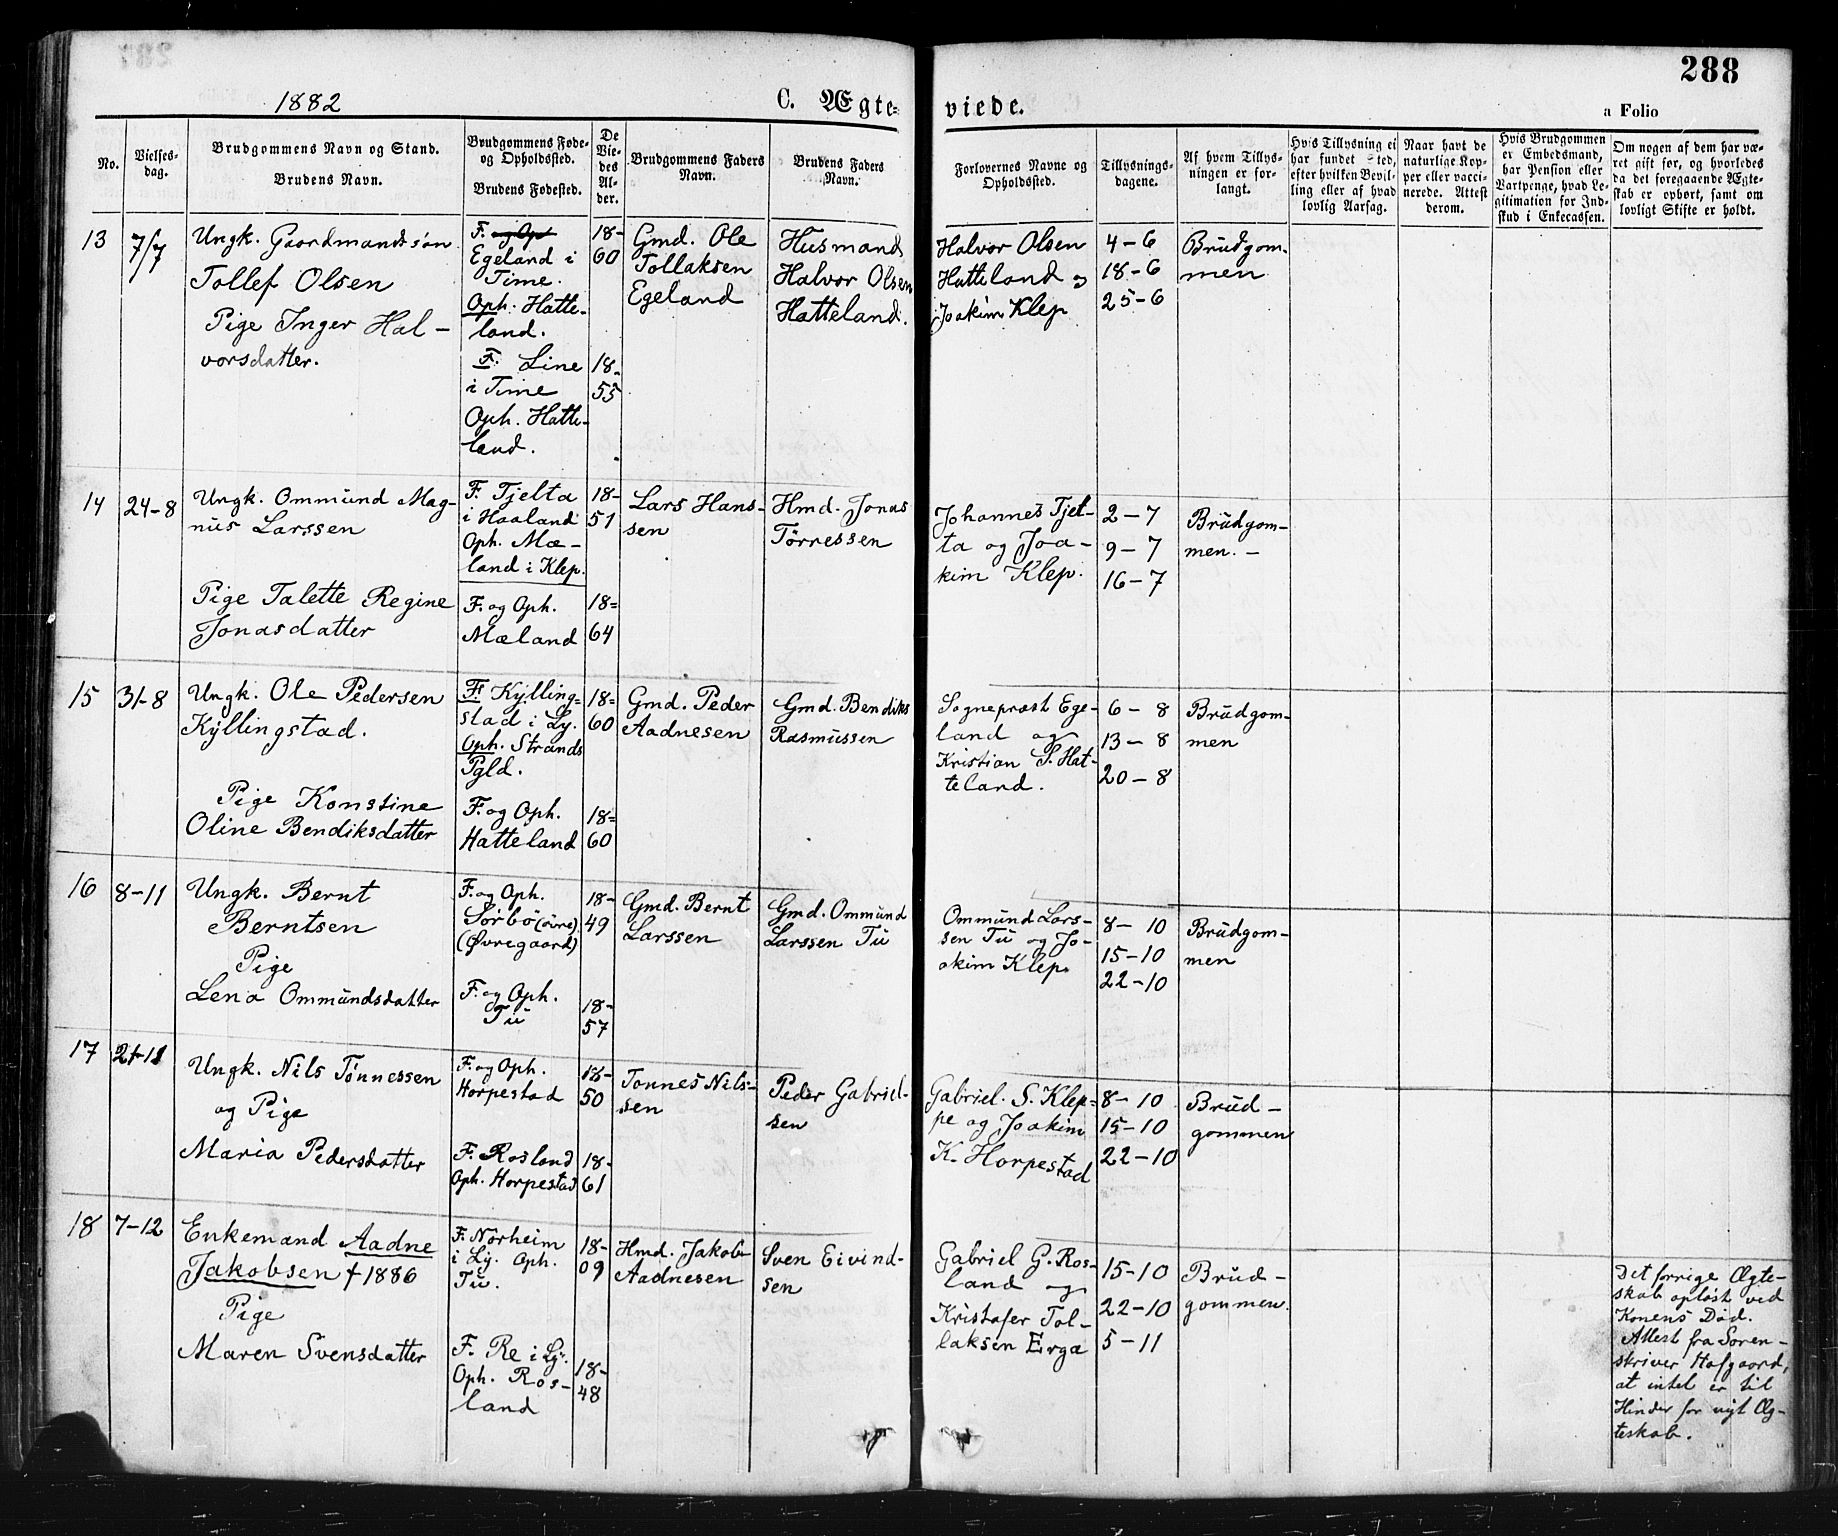 288
1882
C. Ægte-
viede.
a Folio
No.
Vielses-
dag.
Brudgommens Navn og Stand.
Brudens Navn.
Brudgommens Føde-
og Opholdssted.
Brudens Fødested.
De
Vie-
des
Al-
der.
Brudgommens Faders
Navn.
Brudens Faders
Navn.
Forlovernes Navne og
Opholdssted.
Tillysnings-
dagene.
Af hvem Tillys-
ningen er for-
langt.
Hvis Tillysning ei
har fundet Sted,
efter hvilken Bevil-
ling eller af hvad
lovlig Aarsag.
Naar havt de
naturlige Kop-
per eller vacci-
nerede. Attest
derom.
Hvis Brudgommen
er Embedsmand,
har Pension eller
Vartpenge, hvad Le-
gitimation for Ind-
skud i Enkecassen.
Om nogen af dem har væ-
ret gift før, og hvorledes
da det foregaaende Ægte-
skab er ophørt, samt om
lovligt Skifte er holdt.
13
7/7
Ungk. Gaardmandssøn
Tollef Olsen
Pige Inger Hal-
vorsdatter.
F. og Op
Egeland i
Time.
Oph. Hatte-
land.
F. Line
i Time
Oph. Hatte-
land.
18-
60
18-
55
Gmd. Ole
Tollaksen
Egeland
Husmand
Halvor Olsen
Hatteland.
Halvor Olsen
Hatteland og
Joakim Klep
4-6
18-6
25-6
Brudgom-
men
14
24-8
Ungk. Ommund Mag-
nus Larssen
Pige Talette Regine
Jonasdatter
F. Tjelta
i Haaland
Oph. Mæ-
land i Klep.
F. og Oph.
Mæland
18-
51
18-
64
Lars Hans-
sen
Hmd. Jonas
Tørressen
Johannes Tjel-
ta og Joa-
kim Klep.
2-7
9-7
16-7
Brudgom-
men. -
15
31-8
Ungk. Ole Pedersen
Kyllingstad.
Pige Konstine
Oline Bendiksdatter
F. Kylling-
stad i Ly.
Oph. Strands
Pgld.
F. og Oph.
Hatteland
18-
60
18-
60
Gmd. Peder
Aadnesen
Gmd. Bendiks
Rasmussen
Sognepræst Ege-
land og
Kristian S. Hat-
teland.
6-8
13-8
20-8
Brudgom-
men
16
8-11
Ungk. Bernt
Berntsen
Pige
Lena Ommundsdatter
F. og Oph.
Sørbø (øvre)
(Øvregaard)
F. og Oph.
Tu
18-
49
18-
57
Gmd. Bernt
Larssen
Gmd. Ommund
Larssen Tu
Ommund Lars-
sen Tu og Jo-
akim Klep.
8-10
15-10
22-10
Brudgom-
men
17
21-11
Ungk. Nils Tønnessen
og Pige
Maria Pedersdatter
F. og Oph.
Horpestad
F. Rosland
Oph. Horpestad
18-
50
18-
61
Tønnes Nils-
sen
Peder Gabriel-
sen
Gabriel. S. Klep-
pe og Joakim
K. Horpestad
8-10
15-10
22-10
Brud-
gommen
18
7-12
Enkemand Aadne
Jakobsen † 1886
Pige
Maren Svensdatter
F. Nørheim
i Ly. Oph.
Tu.
F. Re i Ly.
Oph. Ros-
land
18-
09
18-
48
Hmd. Jakob
Aadnesen
Sven Eivind-
sen
Gabriel G. Ros-
land og
Kristofer Tol-
laksen Erga
15-10
22-10
5-11
Brud-
gommen.
Det forrige Ægte-
skab opløst ved
Konens Død.
Attest fra Soren-
skriver Hofgaard,
at intet er til
Hinder for nyt Æg-
teskab.